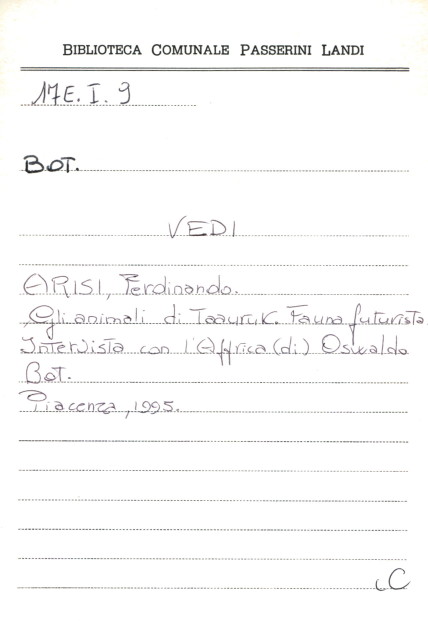 BIBLIOTECA COMUNALE PASSERINI LANDI
17E. I. 9
BOT.
VEDI
ARISI, Ferdinando.
Gli animali di Taaruk. Fauna futurista
Intervista con l'Affrica (di) Oswaldo
Bot.
Piacenza, 1995.
C